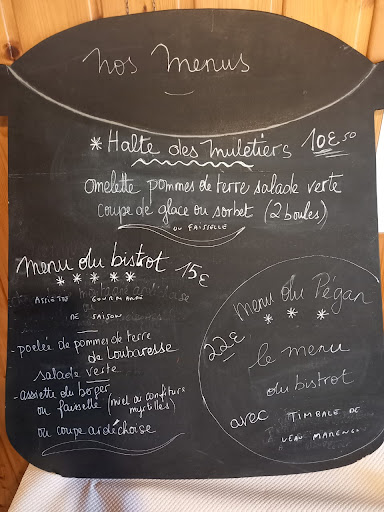 nos menus
* Halte des muletiers 10€50
omelette pommes de terre salade verte
coupe de glace ou sorbet (2 boules)
ou FAISSELLE
menu du bistrot 15€
* * * * *
ASSIETTE GOURMANDE
DE SAISON
- poelée de pommes de terre
de Loubaresse
salade verte
- assiette du berger
ou faisselle (miel ou confiture
myrtilles)
ou coupe ardéchoise
menu du Pégan
* * *
22€
le menu
du bistrot
avec TIMBALE DE
VEAU MARENGO